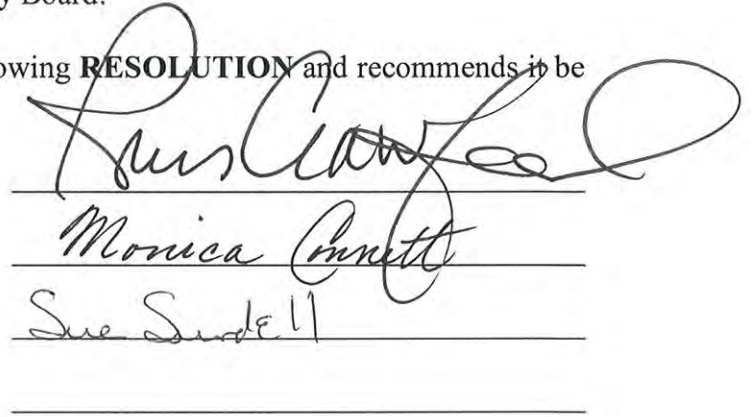 y Board.
owing RESOLUTION and recommends it be
Crawford
Monica Connett
Sue Surdell